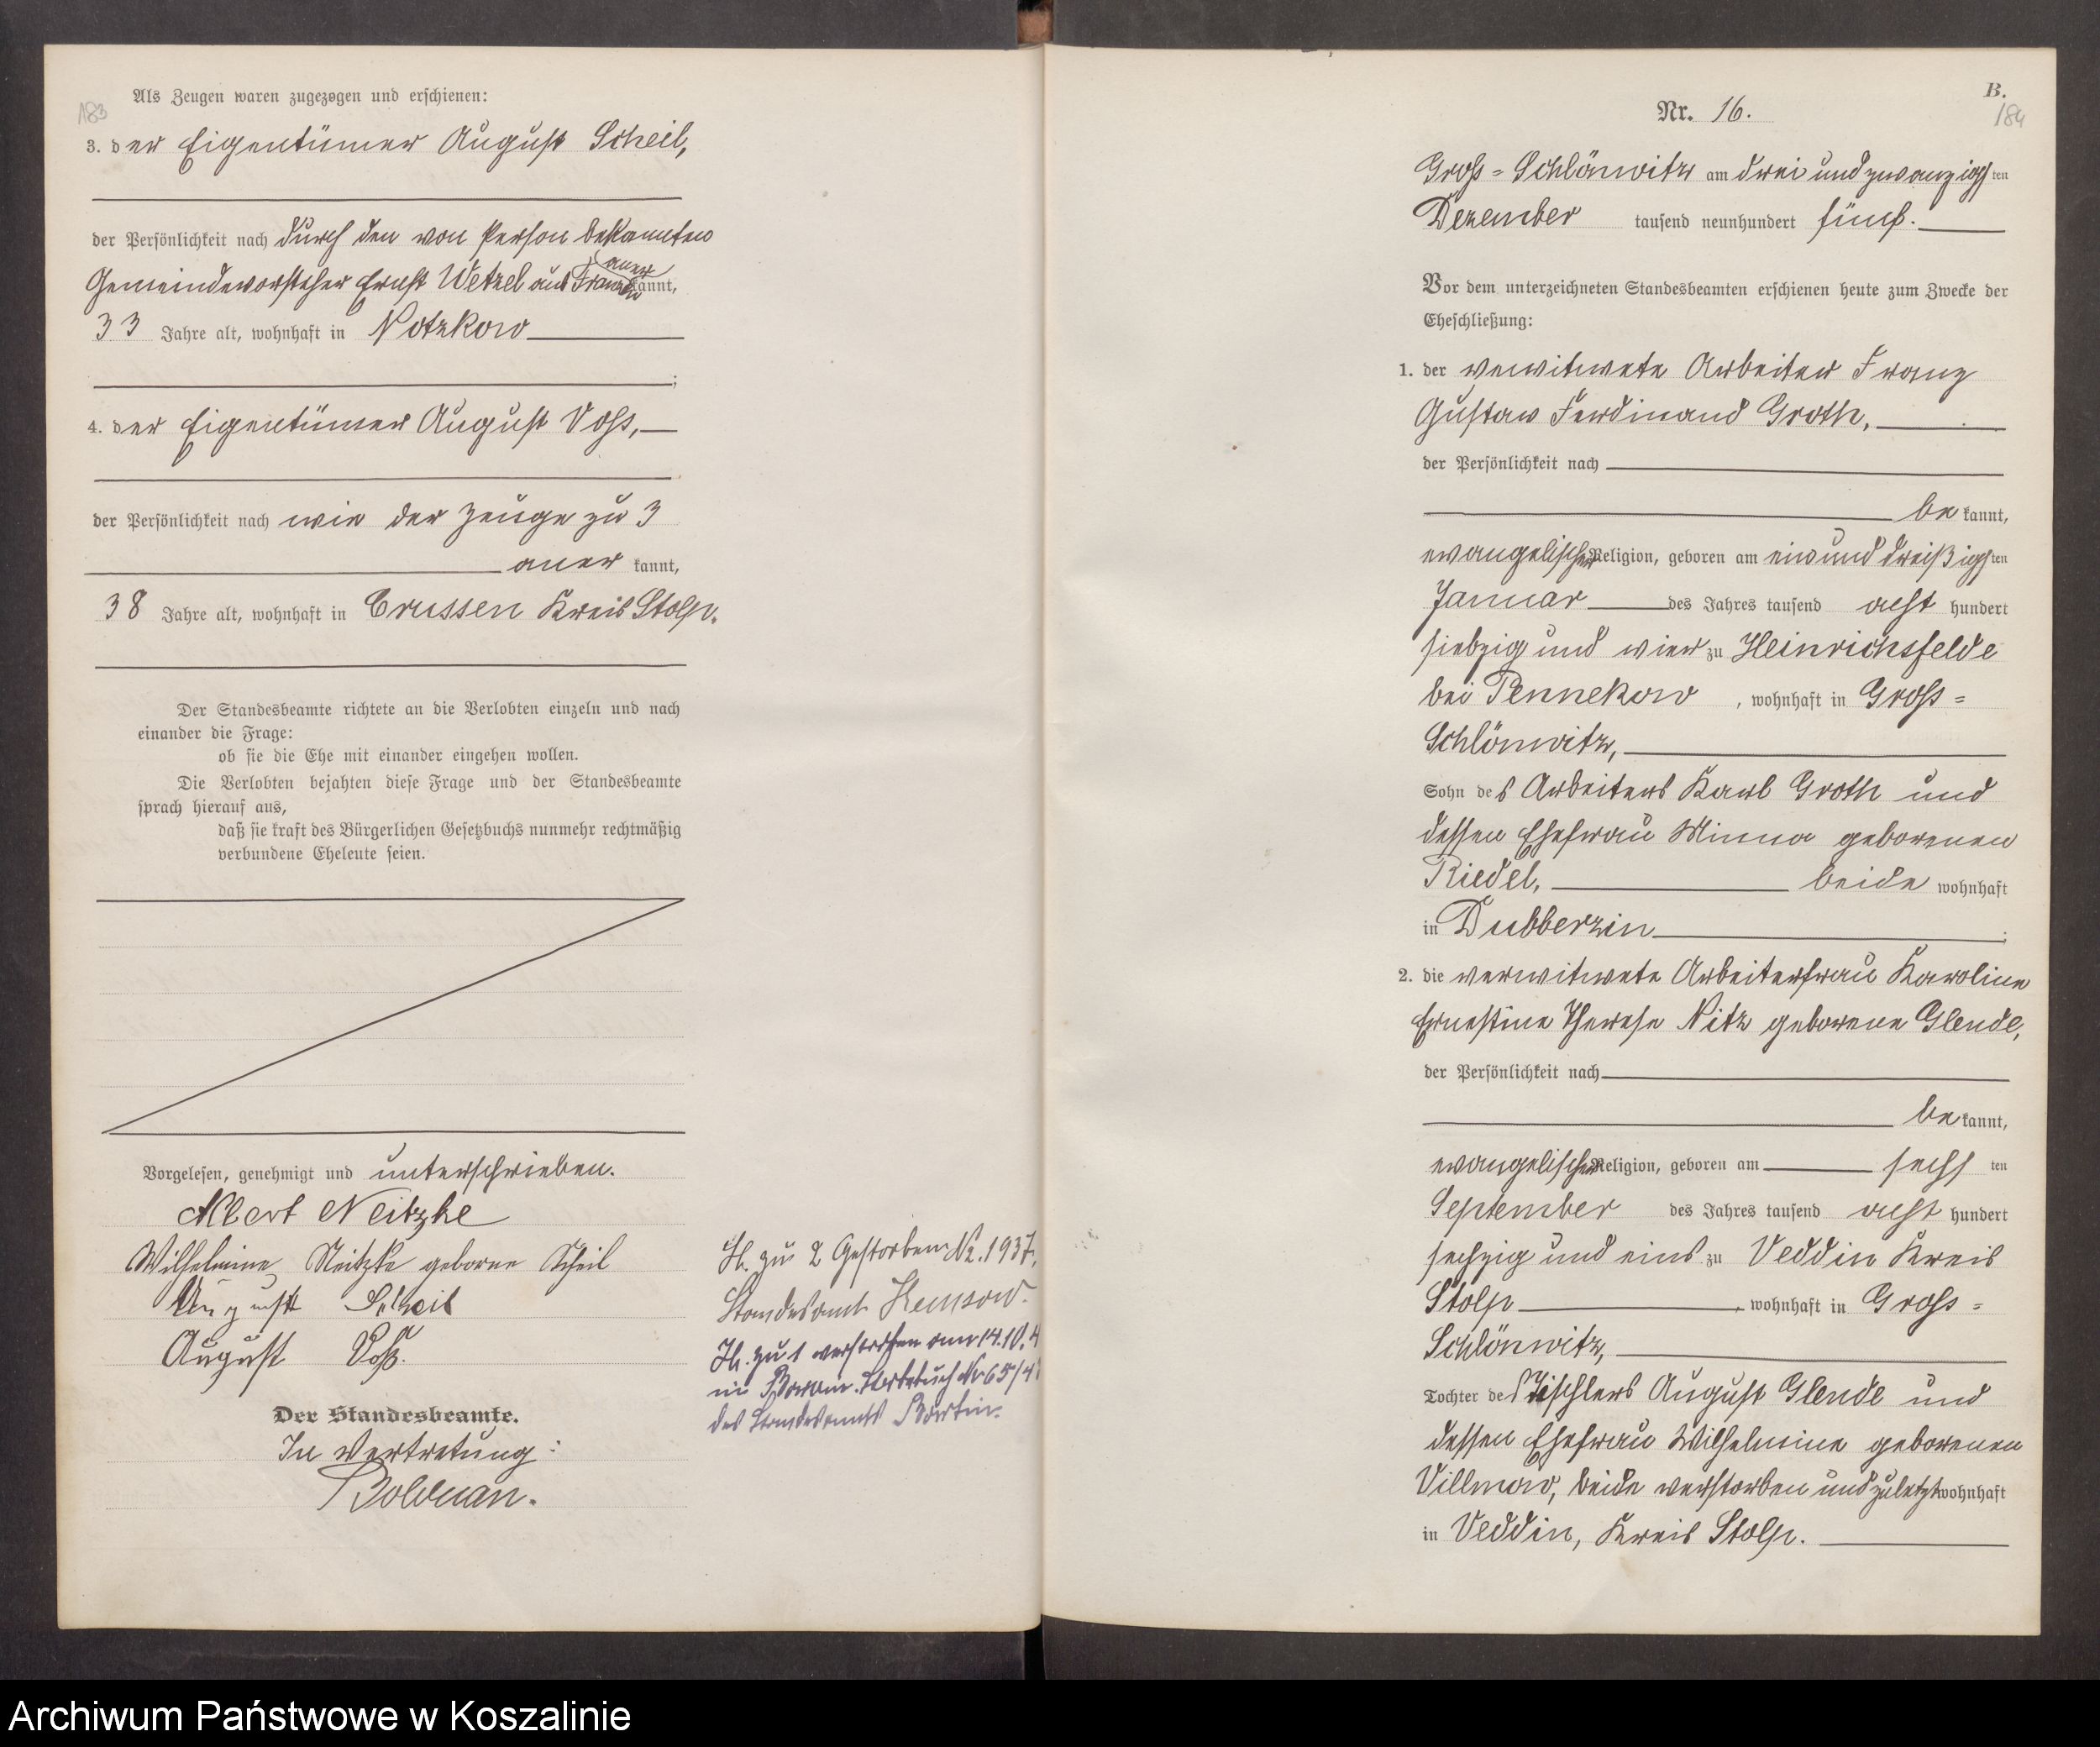 183
Als Zeugen waren zugezogen und erschienen:
3. der Eigentümer August Scheil,
der Persönlichkeit nach durch den von Person bekannten
Gemeindevorsteher Ernst Wetzel aus
aner
kannt,
33 Jahre alt, wohnhaft in Notzkow
;
4. der Eigentümer August Voß,
der Persönlichkeit nach wie der Zeuge zu 3
aner kannt,
38 Jahre alt, wohnhaft in Crussen Kreis Stolp.
Der Standesbeamte richtete an die Verlobten einzeln und nach
einander die Frage:
ob sie die Ehe mit einander eingehen wollen.
Die Verlobten bejahten diese Frage und der Standesbeamte
sprach hierauf aus,
daß sie kraft des Bürgerlichen Gesetzbuchs nunmehr rechtmäßig
verbundene Eheleute seien.
Vorgelesen, genehmigt und unterschrieben.
Albert Neitzke
Wilhelmine Neitzke geborne Scheil
August Scheil
August Voß.
Der Standesbeamte.
In Vertretung:
Bolduan.
H. zu 2 Gestorben Nr. 1937.
Standesamt
H. zu 1 verstorben am 14.10.4
in Sterbebuch Nr 65/4
des Standesamts Bartin.
B.
184
Nr. 16.
Groß-Schlönwitz am dreiundzwanzigsten
Dezember tausend neunhundert fünf.
Vor dem unterzeichneten Standesbeamten erschienen heute zum Zwecke der
Eheschließung:
1. der verwitwete Arbeiter Franz
Gustav Ferdinand Groth,
der Persönlichkeit nach
be kannt,
evangelischer Religion, geboren am einunddreißigsten
Januar des Jahres tausend acht hundert
siebzig und vier zu Heinrichsfelde
bei Pennekow, wohnhaft in Groß-
Schlönwitz,
Sohn des Arbeiters Karl Groth und
dessen Ehefrau Minna geborenen
Riedel, beide wohnhaft
in Dubberzin ;
2. die verwitwete Arbeiterfrau Karoline
Ernestine Therese Nitz geborene Glende,
der Persönlichkeit nach
be kannt,
evangelischer Religion, geboren am sechsten
September des Jahres tausend acht hundert
sechzig und eins zu Veddin Kreis
Stolp, wohnhaft in Groß-
Schlönwitz,
Tochter des Tischlers August Glende und
dessen Ehefrau Wilhelmine geborenen
Villmow, beide verstorben und zuletzt wohnhaft
in Veddin, Kreis Stolp.
Archiwum Państwowe w Koszalinie